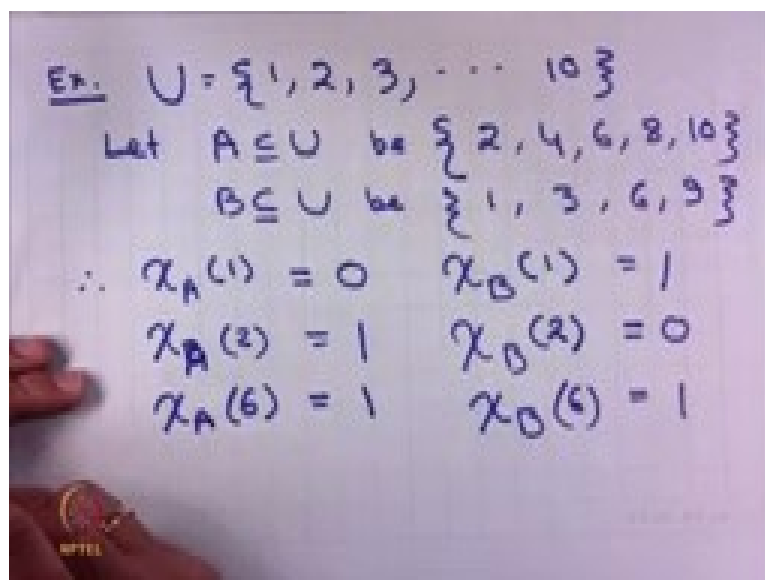 Ex. U = {1, 2, 3, ... 10}
Let A ⊆ U be {2, 4, 6, 8, 10}
B ⊆ U be {1, 3, 6, 9}
∴ χ_A(1) = 0 χ_B(1) = 1
χ_A(2) = 1 χ_B(2) = 0
χ_A(6) = 1 χ_B(6) = 1
NPTEL